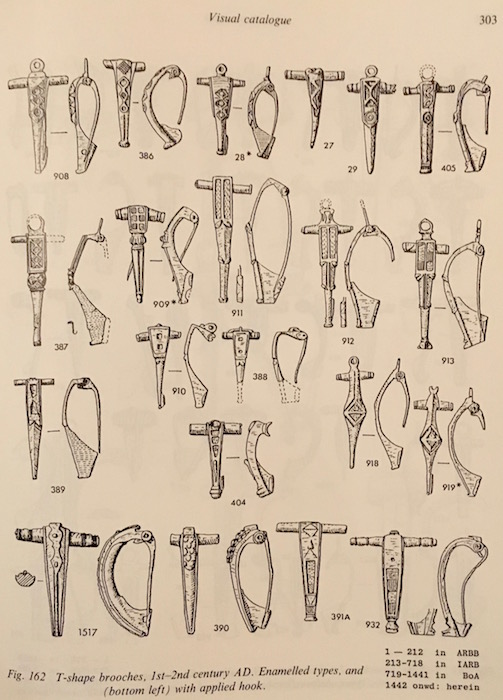 Visual catalogue
303
908
386
28*
27
29
405
387
909*
911
912
913
910
388
389
404
918
919*
1517
390
391A
932
1 — 212 in ARBB
213-718 in IARB
719-1441 in BoA
1442 onwd: herein
Fig. 162 T-shape brooches, 1st–2nd century AD. Enamelled types, and
(bottom left) with applied hook.